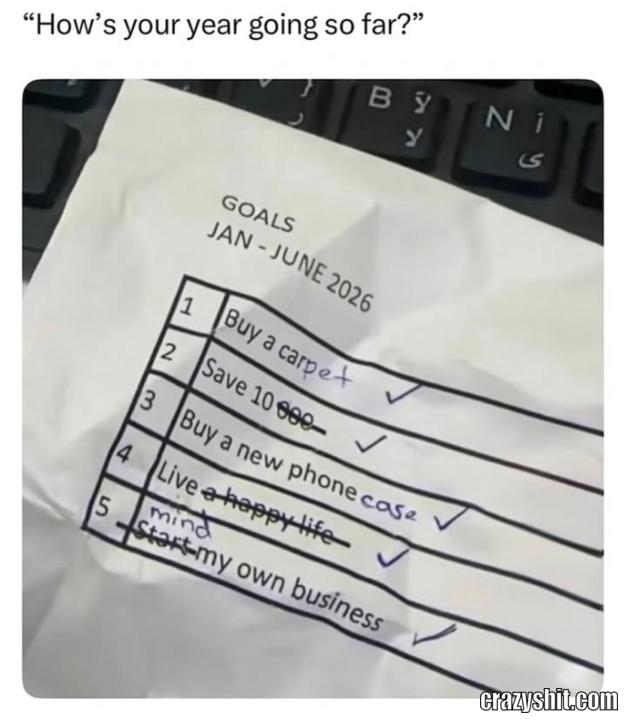 “How’s your year going so far?”
B ў
لا
N i
ى
GOALS
JAN - JUNE 2026
1 Buy a carpet ✓
2 Save 10 000 ✓
3 Buy a new phone case ✓
4 Live a happy life ✓
mind
5 Start my own business ✓
crazyshit.com